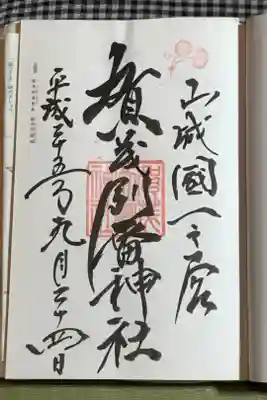 山城國一之宮
賀茂別雷神社
平成二十五年九月二十四日